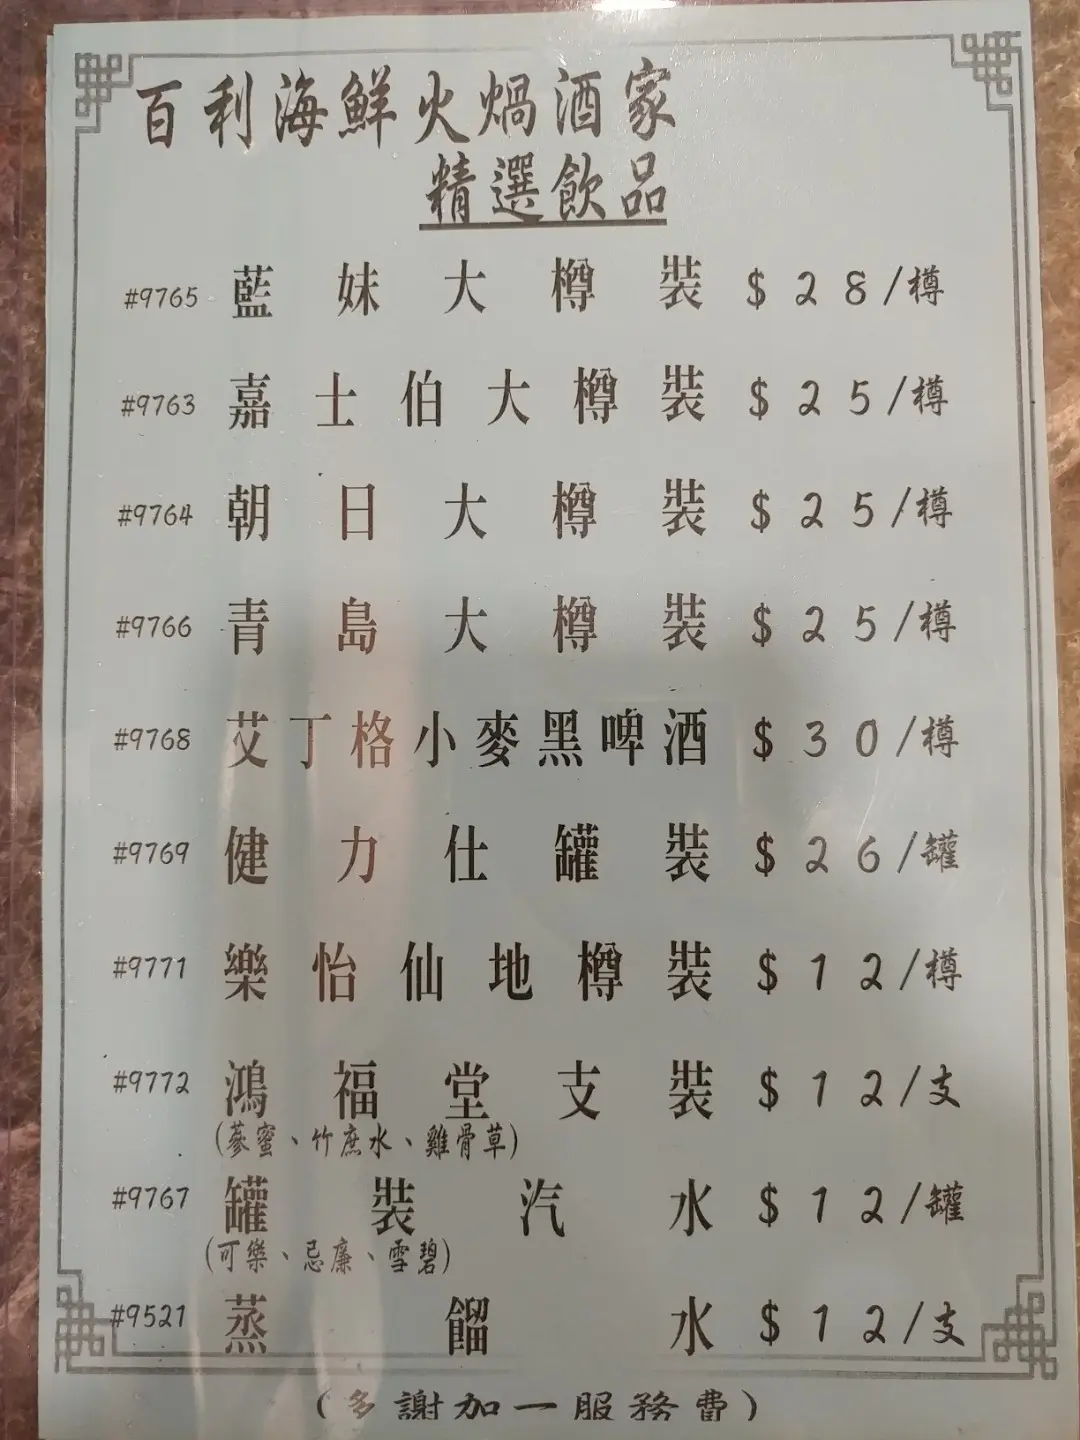 百利海鮮火煱酒家
精選飲品
#9765 藍妹大樽裝 $28/樽
#9763 嘉士伯大樽裝 $25/樽
#9764 朝日大樽裝 $25/樽
#9766 青島大樽裝 $25/樽
#9768 艾丁格小麥黑啤酒 $30/樽
#9769 健力仕罐裝 $26/罐
#9771 樂怡仙地樽裝 $12/樽
#9772 鴻福堂支裝 $12/支
(蔘蜜、竹庶水、雞骨草)
#9767 罐裝汽水 $12/罐
(可樂、忌廉、雪碧)
#9521 蒸餾水 $12/支
(多謝加一服務費)